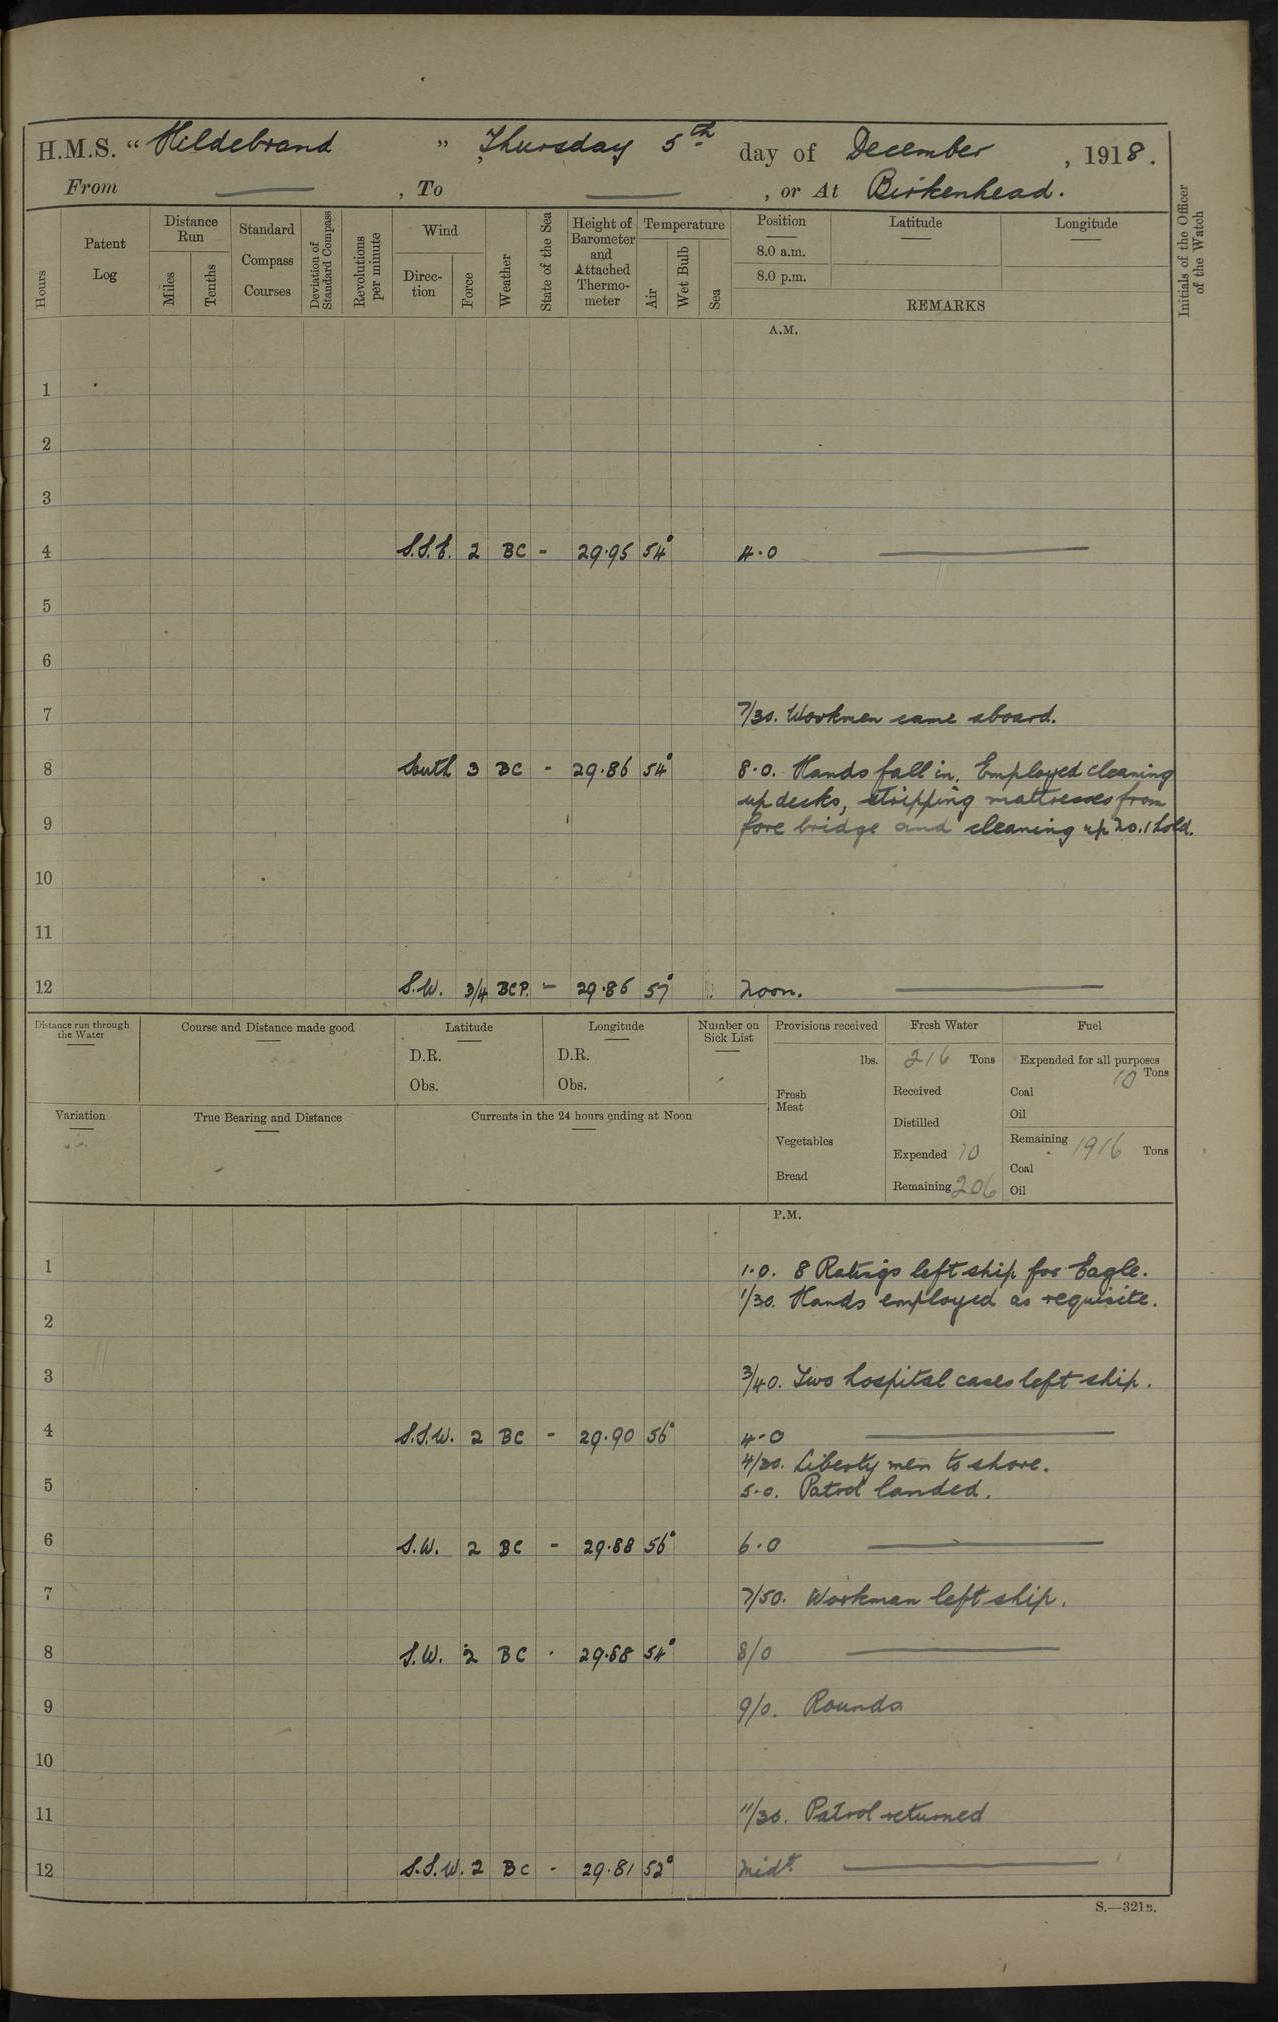 H.M.S. "Hildebrand" Thursday 5th day of December, 1918.
From —, To —, or At Birkenhead.
Hours
Patent Log
Distance Run
Miles
Tenths
Standard Compass Courses
Deviation of Standard Compass
Revolutions per minute
Wind
Direction
Force
Weather
State of the Sea
Height of Barometer and Attached Thermometer
Temperature
Air
Wet Bulb
Sea
Position
8.0 a.m.
8.0 p.m.
Latitude
Longitude
REMARKS
Initials of the Officer of the Watch
A.M.
1
2
3
4 S.S.E. 2 BC - 29.95 54° 4.0 —
5
6
7 7/30. Workmen came aboard.
8 South 3 BC - 29.86 54° 8.0. Hands fall in. Employed cleaning
up decks, stripping mattresses from
9 fore bridge and cleaning up No.1 hold.
10
11
12 S.W. 3/4 BCP. - 29.86 57° Noon. —
Distance run through the Water
Course and Distance made good
Latitude
D.R.
Obs.
Longitude
D.R.
Obs.
Number on Sick List
Provisions received
lbs.
Fresh Meat
Vegetables
Bread
Fresh Water
216 Tons
Received
Distilled
Expended 10
Remaining 206
Fuel
Expended for all purposes
10 Tons
Coal
Oil
Remaining 1916 Tons
Coal
Oil
Variation
True Bearing and Distance
Currents in the 24 hours ending at Noon
P.M.
1 1.0. 8 Ratings left ship for Eagle.
1/30. Hands employed as requisite.
2
3 3/40. Two hospital cases left ship.
4 S.S.W. 2 BC - 29.90 56° 4-0 —
4/30. Liberty men to shore.
5 5-0. Patrol landed.
6 S.W. 2 BC - 29.88 56° 6.0 —
7 7/50. Workman left ship.
8 S.W. 2 BC - 29.88 54° 8/0 —
9 9/0. Rounds
10
11 11/30. Patrol returned
12 S.S.W. 2 BC - 29.81 52° Midt. —
S.—321B.